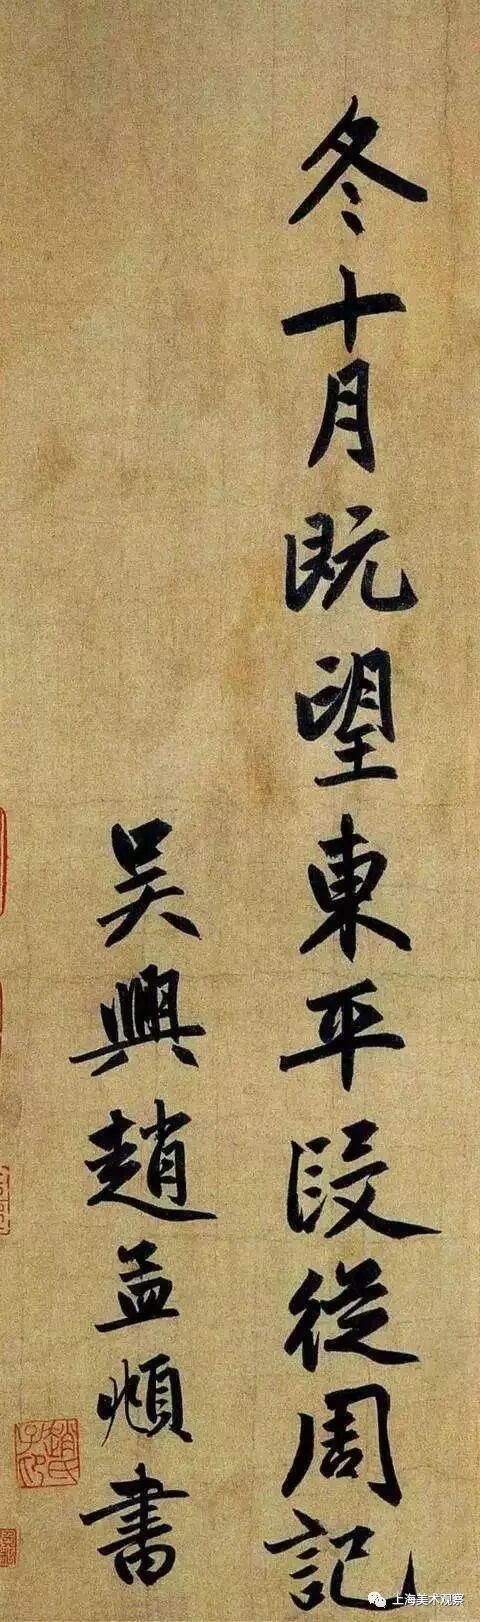 冬十月既望東平段從周記
吴興趙孟頫書
趙氏子印
上海美术观察